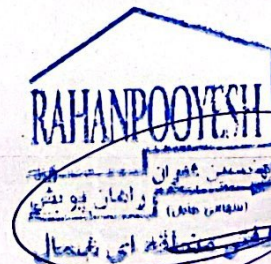 RAHANPOOYESH
مهندسین عمران
راهان پویش
(سهامی خاص)
منطقه ای شمال